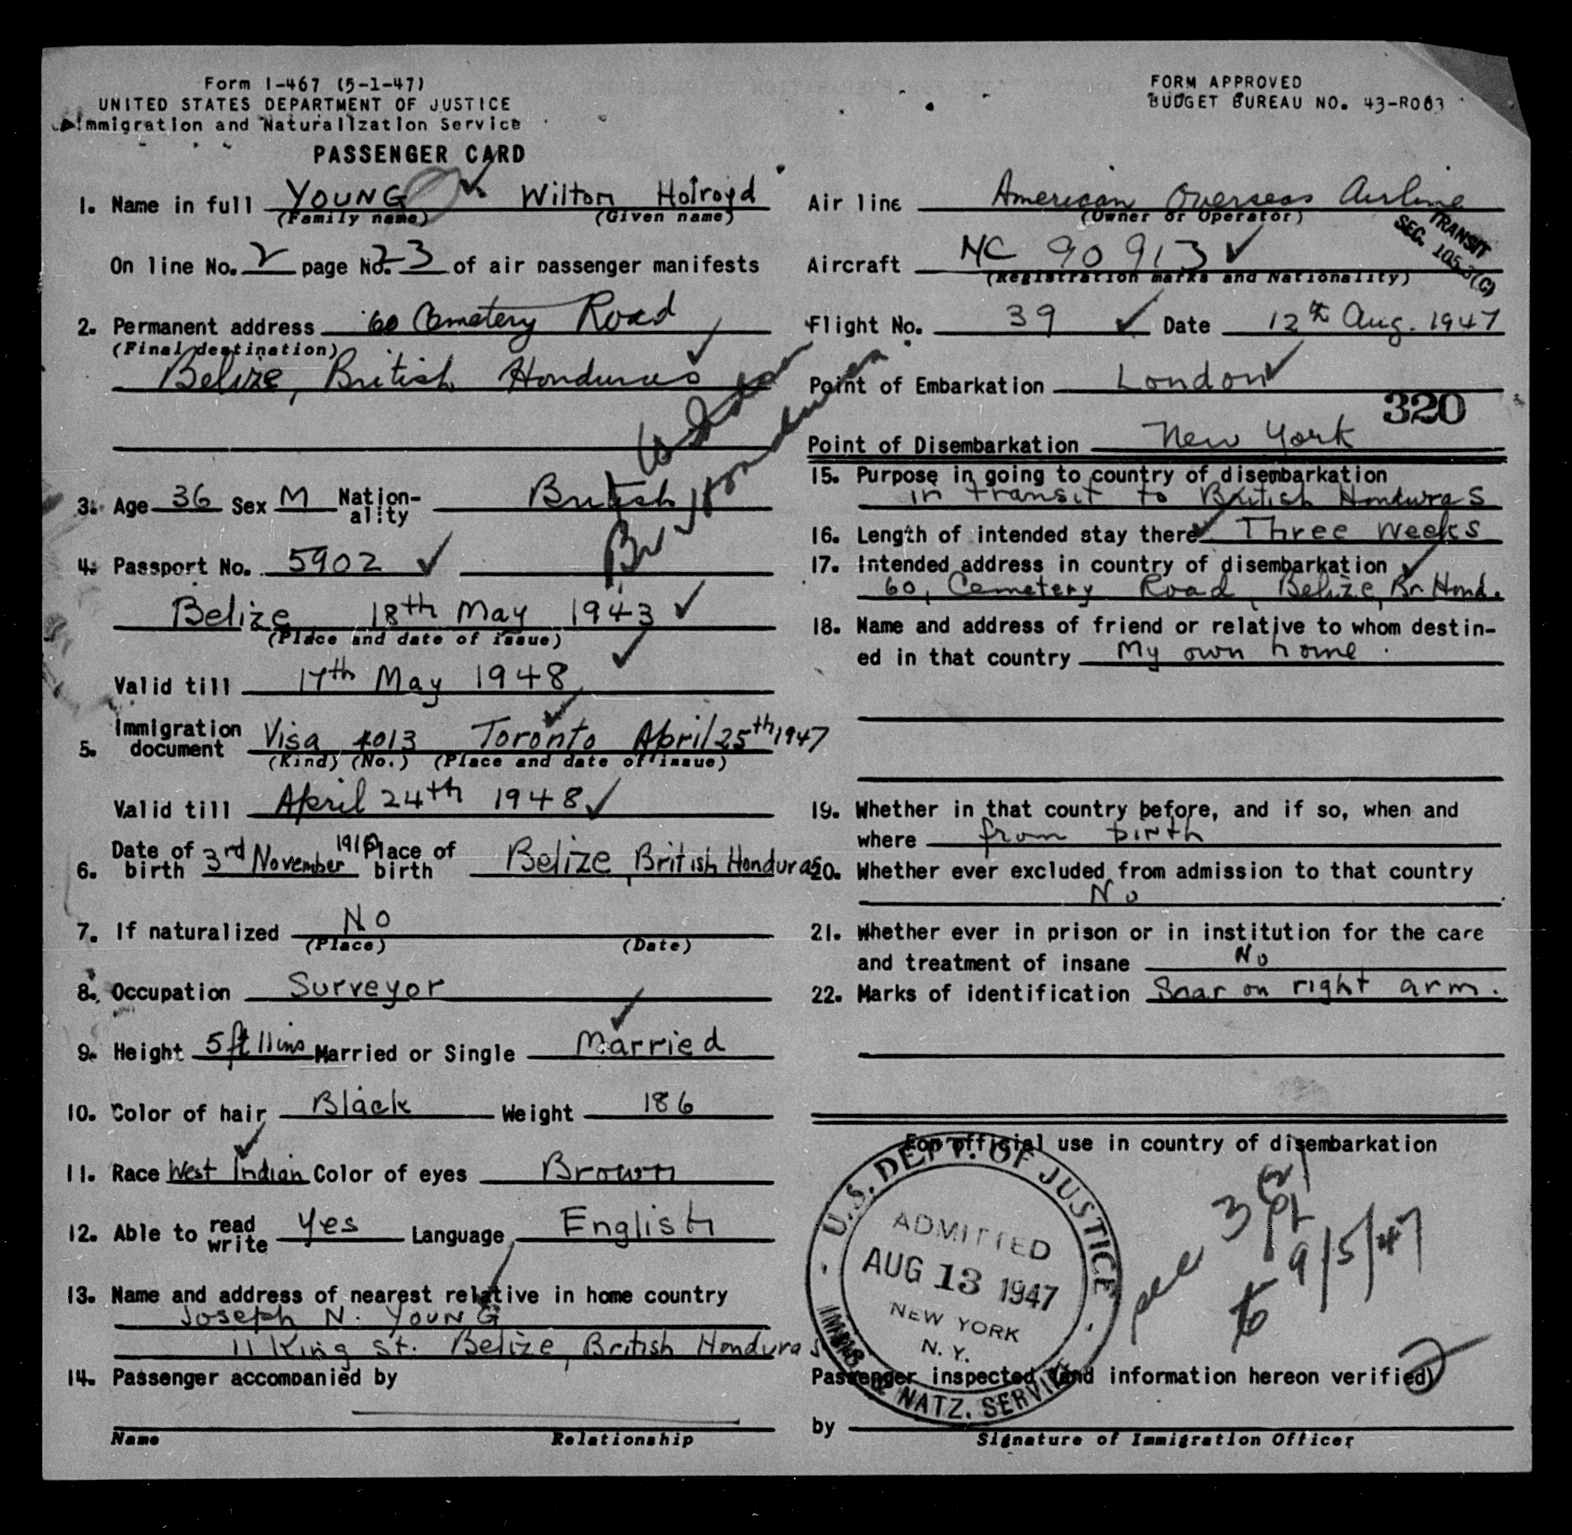 Form I-467 (5-1-47)
UNITED STATES DEPARTMENT OF JUSTICE
Immigration and Naturalization Service
PASSENGER CARD
FORM APPROVED
BUDGET BUREAU NO. 43-R063
1. Name in full YOUNG Wilton Holroyd
(Family name) (Given name)
On line No. 2 page No. 23 of air passenger manifests
2. Permanent address 60 Cemetery Road
(Final destination)
Belize, British Honduras
3. Age 36 Sex M Nation-ality British
Br Honduran
4. Passport No. 5902
Belize 18th May 1943
(Place and date of issue)
Valid till 17th May 1948
5. Immigration document Visa 4013 Toronto April 25th 1947
(Kind) (No.) (Place and date of issue)
Valid till April 24th 1948
6. Date of birth 3rd November 1910 Place of birth Belize, British Honduras
7. If naturalized No
(Place) (Date)
8. Occupation Surveyor
9. Height 5 ft 11 ins Married or Single Married
10. Color of hair Black Weight 186
11. Race West Indian Color of eyes Brown
12. Able to read write Yes Language English
13. Name and address of nearest relative in home country
Joseph N. YOUNG
11 King St. Belize, British Honduras
14. Passenger accompanied by
Name Relationship
Air line American Overseas Airline
(Owner or Operator)
TRANSIT
SEC. 105.3(C)
Aircraft NC 90913
(Registration marks and Nationality)
Flight No. 39 Date 12th Aug. 1947
Point of Embarkation London
320
Point of Disembarkation New York
15. Purpose in going to country of disembarkation
in transit to British Honduras
16. Length of intended stay there Three weeks
17. Intended address in country of disembarkation
60, Cemetery Road, Belize, Br. Hond.
18. Name and address of friend or relative to whom destin-
ed in that country My own home.
19. Whether in that country before, and if so, when and
where from birth
20. Whether ever excluded from admission to that country
No
21. Whether ever in prison or in institution for the care
and treatment of insane No
22. Marks of identification Scar on right arm.
For official use in country of disembarkation
U.S. DEPT. OF JUSTICE
ADMITTED
AUG 13 1947
NEW YORK
N. Y.
IMMIG. & NATZ. SERVICE
9/5/47
Passenger inspected (and information hereon verified)
by
Signature of Immigration Officer